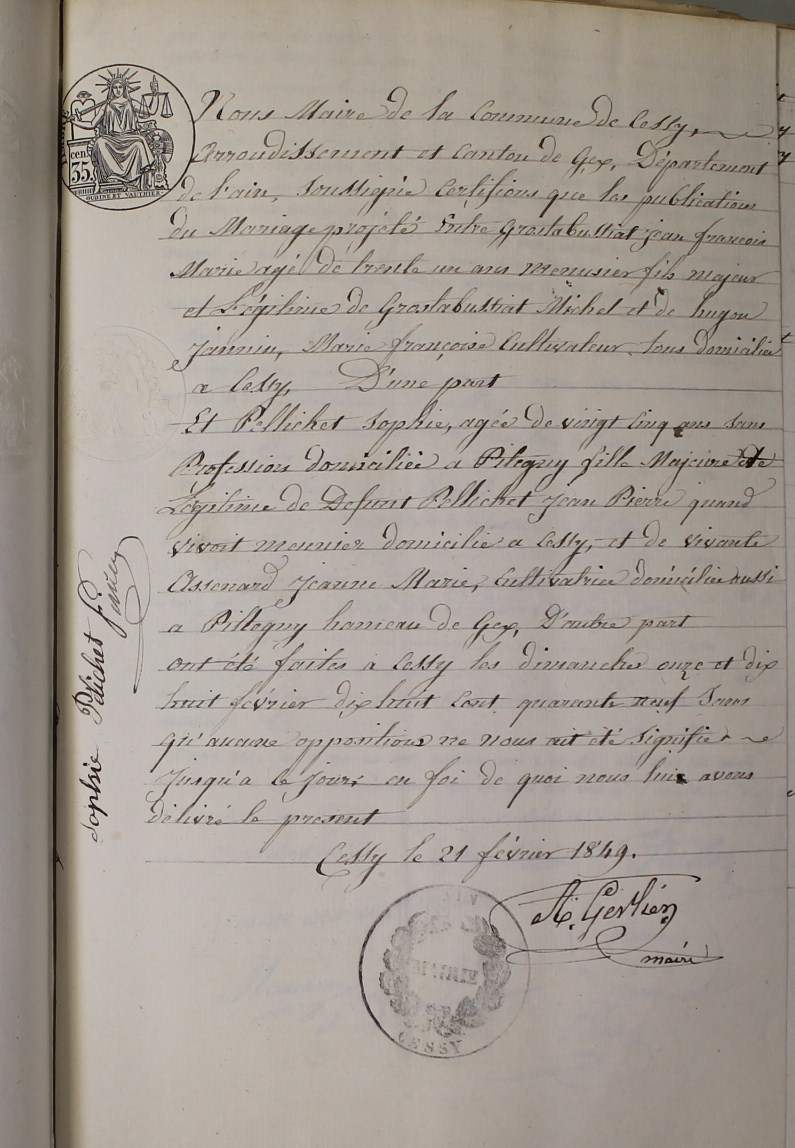 cent.
35.
OUDINÉ ET VAUTHIER
Nous Maire de la Commune de Cessy,
Arroudissement et Canton de Gex, Département
de l'ain, soussignie Certifions que les publications
du Mariage projété Entre Grostabussiat jean françois
Marie agé de trente un ans menusier fils majeur
et Légitime de Grostabussiat Michel et de hugon
jannin, Marie françoise Cultivateur tous domicilié
a Cessy, D'une part
Et Pellichet Sophie, agée de vingt cinq ans sans
Profession domiciliée a Pitegny fille Majeure et
Légitime de Defunt Pellichet Jean Pierre quand
vivoit meunier domicilié a Cessy, et de vivante
Assenard Jeanne Marie, Cultivatrice domiciliée aussi
a Pittegny hameau de Gex, D'autre part
ont été faites à Cessy les dimanches onze et dix
huit février dix huit cent quarante neuf Sans
qu'aucune oppositions ne nous ait été signifie
jusqu'a ce jour, en foi de quoi nous lui avons
délivré le present
Cessy le 21 février 1849.
A. Gerlier
maire
MAIRIE
CESSY
Sophie Pélichet